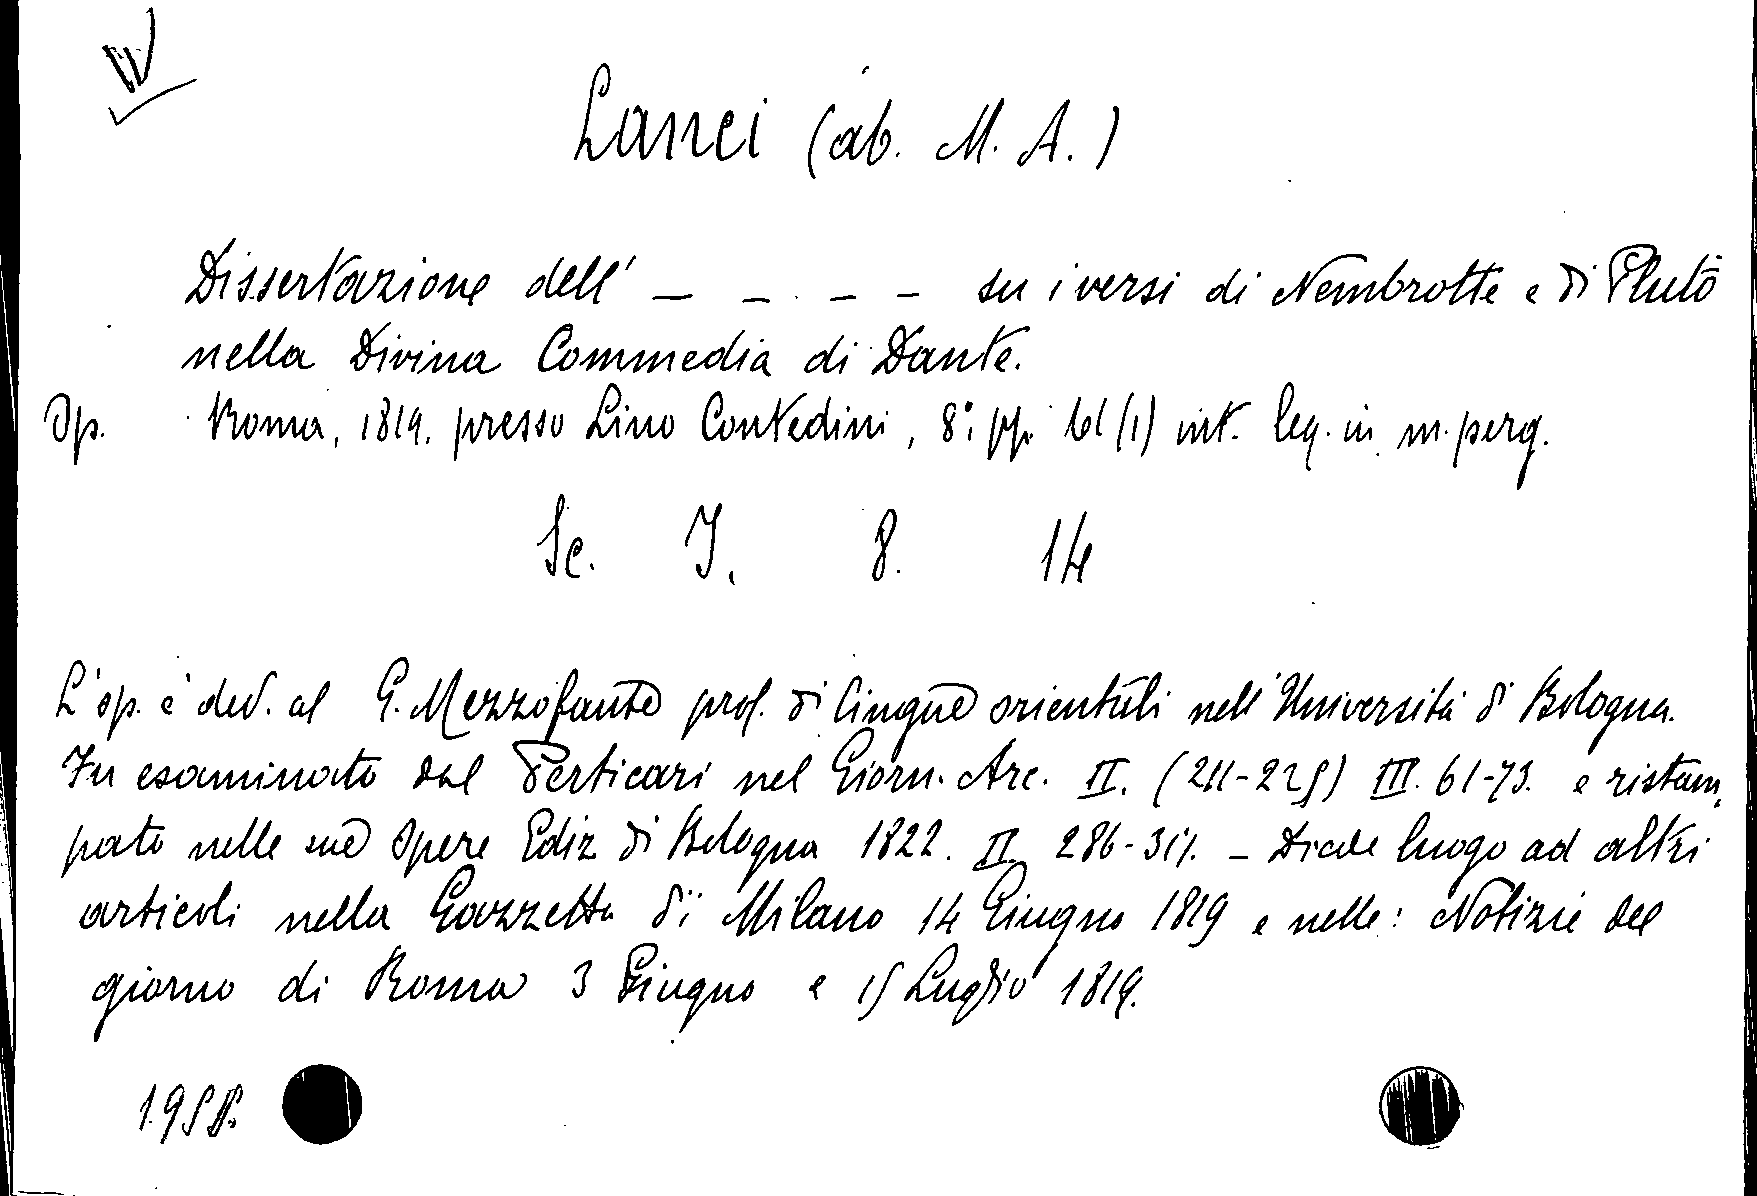 Lanci (ab. M. A.)
Dissertazione dell' _ _ _ _ su i versi di Nembrotte e di Pluto
nella Divina Commedia di Dante.
Op. Roma, 1819. presso Lino Contedini, 8° pp. 61 (1) int. leg. in m. perg.
Sc. I. 8. 14
L'op. è ded. al G. Mezzofante prof. di lingue orientali nell'Università di Bologna.
Fu esaminato dal Perticari nel Giorn. Arc. II. (211-225) III. 61-73. e ristam,
pato nelle sue Opere Ediz di Bologna 1822. II 286-317. - Diede luogo ad altri
articoli nella Gazzetta di Milano 14 Giugno 1819 e nelle: Notizie del
giorno di Roma 3 Giugno e 15 Luglio 1819.